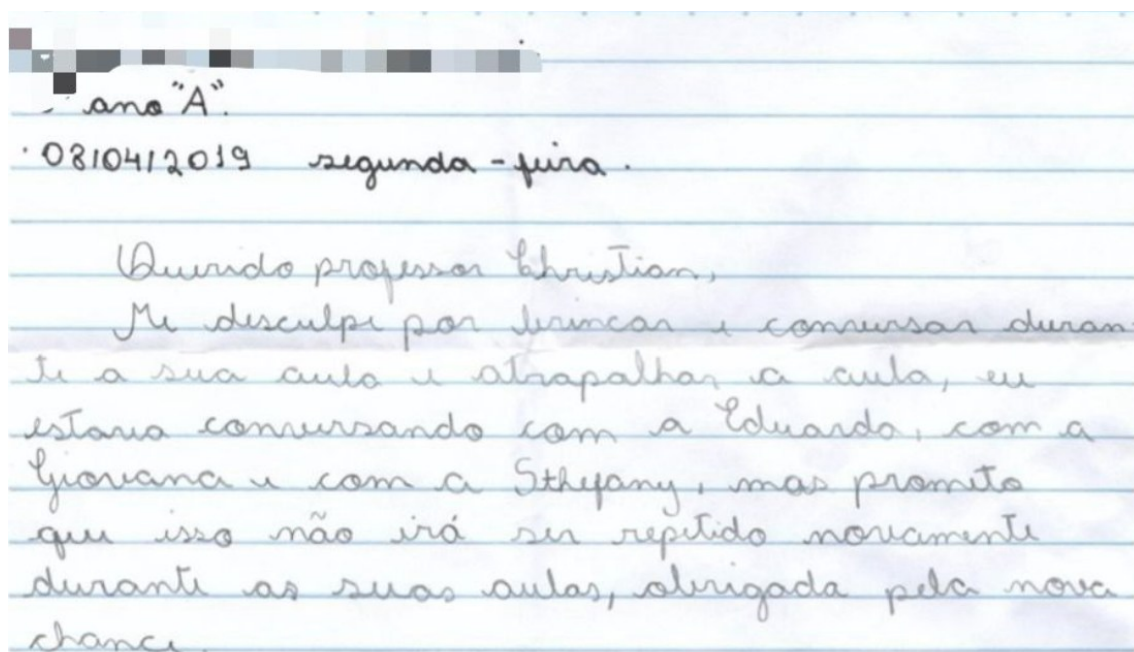 ano "A".
08/04/2019 segunda-feira.
Querido professor Christian,
Me desculpe por brincar e conversar duran-
te a sua aula e atrapalhar a aula, eu
estava conversando com a Eduarda, com a
Giovana e com a Sthefany, mas prometo
que isso não irá ser repetido novamente
durante as suas aulas, obrigada pela nova
chance.